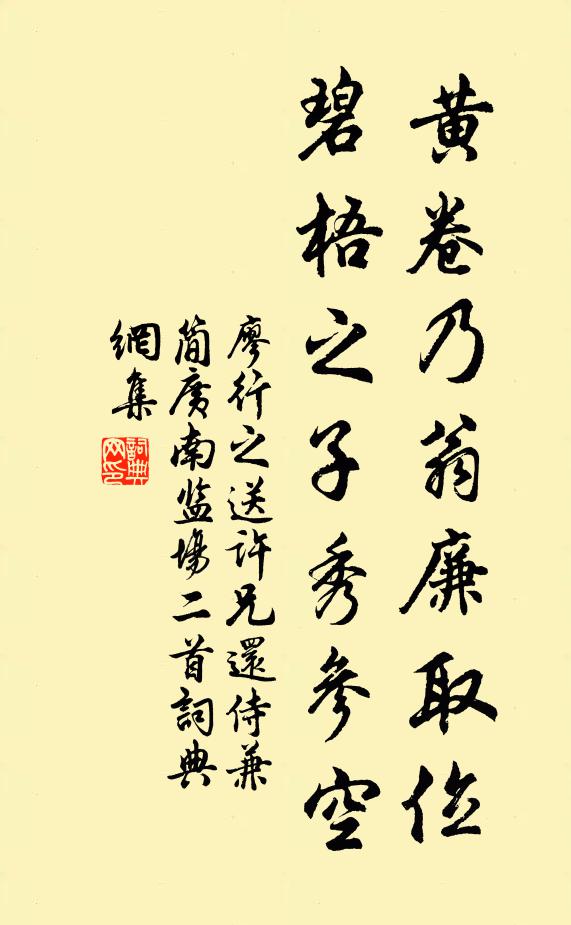 黄卷乃翁廉取俭
碧梧之子秀參空
廖行之送許兄還侍兼
简廣南监場二首詞典
網集
詞典
网印